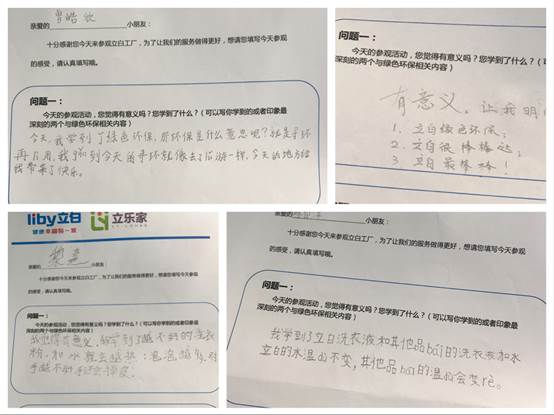 亲爱的 曾皓欣 小朋友：
十分感谢您今天来参观立白工厂，为了让我们的服务做得更好，想请您填写今天参观
的感受，请认真填写哦。
问题一：
今天的参观活动，您觉得有意义吗？您学到了什么？（可以写你学到的或者印象最
深刻的两个与绿色环保相关内容）
今天，我学到了绿色环保，那环保是什么意思呢？就是
再利用，我 到今天的 就像去了 游一样，今天的地方给
我带来了快乐。
问题一：
今天的参观活动，您觉得有意义吗？您学到了什么？（
深刻的两个与绿色环保相关内容）
有意义，让我明
1、立白绿色环保，
2、立白很棒棒哒，
3、立白最棒棒！
liby立白 立乐家
健康幸福每一家 LI-LOHAS
亲爱的 小朋友：
十分感谢您今天来参观立白工厂，为了让我们的服务做得更好，想请您填写今天参观
的感受，请认真填写哦。
问题一：
今天的参观活动，您觉得有意义吗？您学到了什么？（可以写你学到的或者印象最
深刻的两个与绿色环保相关内容）
我觉得有意义，我学到了越不好的洗衣
粉，和水就会越热；泡泡越多，对
手越不好
亲爱的 小朋友：
十分感谢您今天来参观立白工厂，为了让我们的服务做得更好，想请您填写今天参观
的感受，请认真填写哦。
问题一：
今天的参观活动，您觉得有意义吗？您学到了什么？（可以写你学到的或者印象最
深刻的两个与绿色环保相关内容）
我学到了立白洗衣液和其他品bāi的洗衣液和水
立白的水温du不变，其他品bāi的温du会变